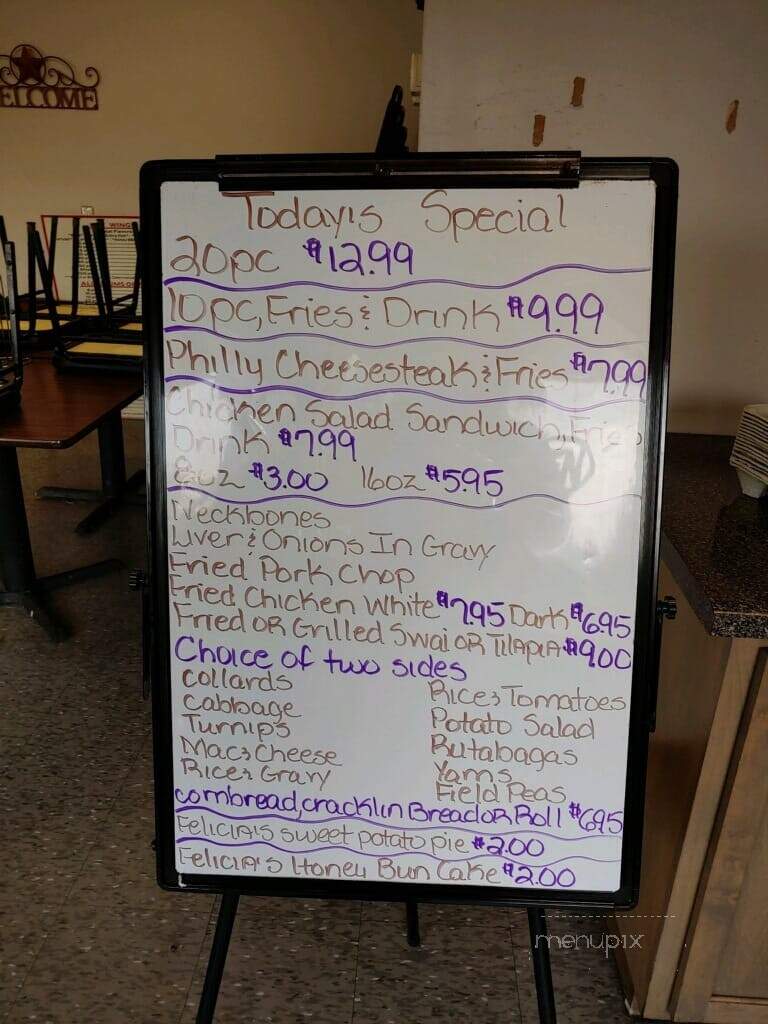 WELCOME
WING
Today's Special
20pc $12.99
10pc, Fries & Drink $9.99
Philly Cheesesteak & Fries $7.99
Chicken Salad Sandwich, Fries
Drink $7.99
8oz $3.00 16oz $5.95
Neckbones
Liver & Onions In Gravy
Fried Pork Chop
Fried Chicken White $7.95 Dark $6.95
Fried OR Grilled Swai OR Tilapia $9.00
Choice of two sides
Collards
Cabbage
Turnips
Mac & Cheese
Rice & Gravy
Rice & Tomatoes
Potato Salad
Rutabagas
Yams
Field Peas
cornbread, cracklin Bread OR Roll $6.95
Felicia's sweet potato pie $2.00
Felicia's Honey Bun Cake $2.00
menupix